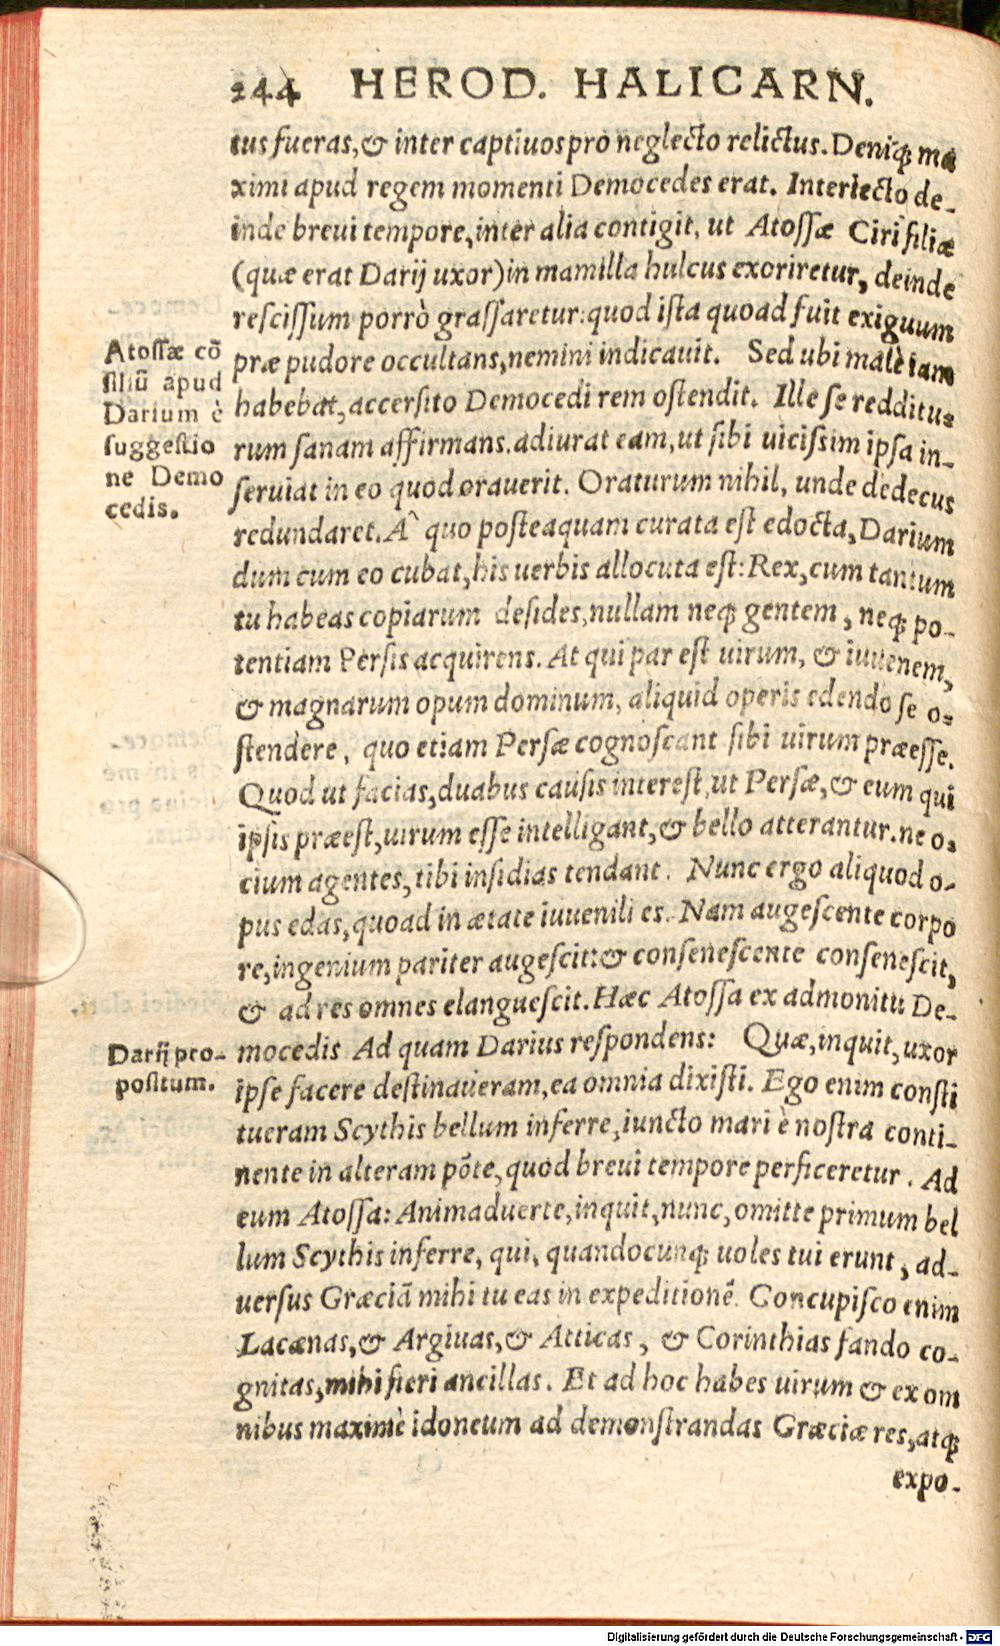 244 HEROD. HALICARN.
tus fueras, & inter captiuos pro neglecto relictus. Deniq; ma
ximi apud regem momenti Democedes erat. Interiecto de-
inde breui tempore, inter alia contigit, ut Atossæ Ciri filiæ
(quæ erat Darij uxor) in mamilla hulcus exoriretur, deinde
rescissum porrò grassaretur: quod ista quoad fuit exiguum
præ pudore occultans, nemini indicauit. Sed ubi malè iam
habebat, accersito Democedi rem ostendit. Ille se redditu-
rum sanam affirmans. adiurat eam, ut sibi uicissim ipsa in-
seruiat in eo quod orauerit. Oraturum nihil, unde dedecus
redundaret. A` quo posteaquam curata est edocta, Darium
dum cum eo cubat, his uerbis allocuta est: Rex, cum tantum
tu habeas copiarum desides, nullam neq; gentem, neq; po-
tentiam Persis acquirens. At qui par est uirum, & iuuenem,
& magnarum opum dominum, aliquid operis edendo se o-
stendere, quo etiam Persæ cognoscant sibi uirum præesse.
Quod ut facias, duabus causis interest, ut Persæ, & eum qui
ipsis præest, uirum esse intelligant, & bello atterantur. ne o-
cium agentes, tibi insidias tendant. Nunc ergo aliquod o-
pus edas, quoad in ætate iuuenili es. Nam augescente corpo
re, ingenium pariter augescit: & consenescente consenescit,
& ad res omnes elanguescit. Hæc Atossa ex admonitu De-
mocedis Ad quam Darius respondens: Quæ, inquit, uxor
ipse facere destinaueram, ea omnia dixisti. Ego enim consti
tueram Scythis bellum inferre, iuncto mari è nostra conti-
nente in alteram põte, quod breui tempore perficeretur. Ad
eum Atossa: Animaduerte, inquit, nunc, omitte primum bel
lum Scythis inferre, qui, quandocunq; uoles tui erunt, ad-
uersus Græciã mihi tu eas in expeditionẽ. Concupisco enim
Lacænas, & Argiuas, & Atticas, & Corinthias fando co-
gnitas, mihi fieri ancillas. Et ad hoc habes uirum & ex om
nibus maximè idoneum ad demonstrandas Græciæ res, atq;
expo-
Atossæ cõ
siliũ apud
Darium è
suggestio
ne Demo
cedis.
Darij pro-
positum.
Digitalisierung gefördert durch die Deutsche Forschungsgemeinschaft - DFG